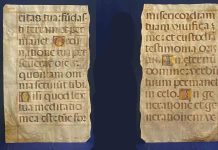 citas tua: fudas
ti terram et per
manet
tione tua per
seuerat dies
quoniam om
nia seruiut tibi
Nisi quod lex
tua meditatio
mea est: tuc for
misericordiam
tuam uiuifica
me: et custodia
testimonia oris
tui In eternu
domine uerbu
tuum permanet
in celo
In
generatione et